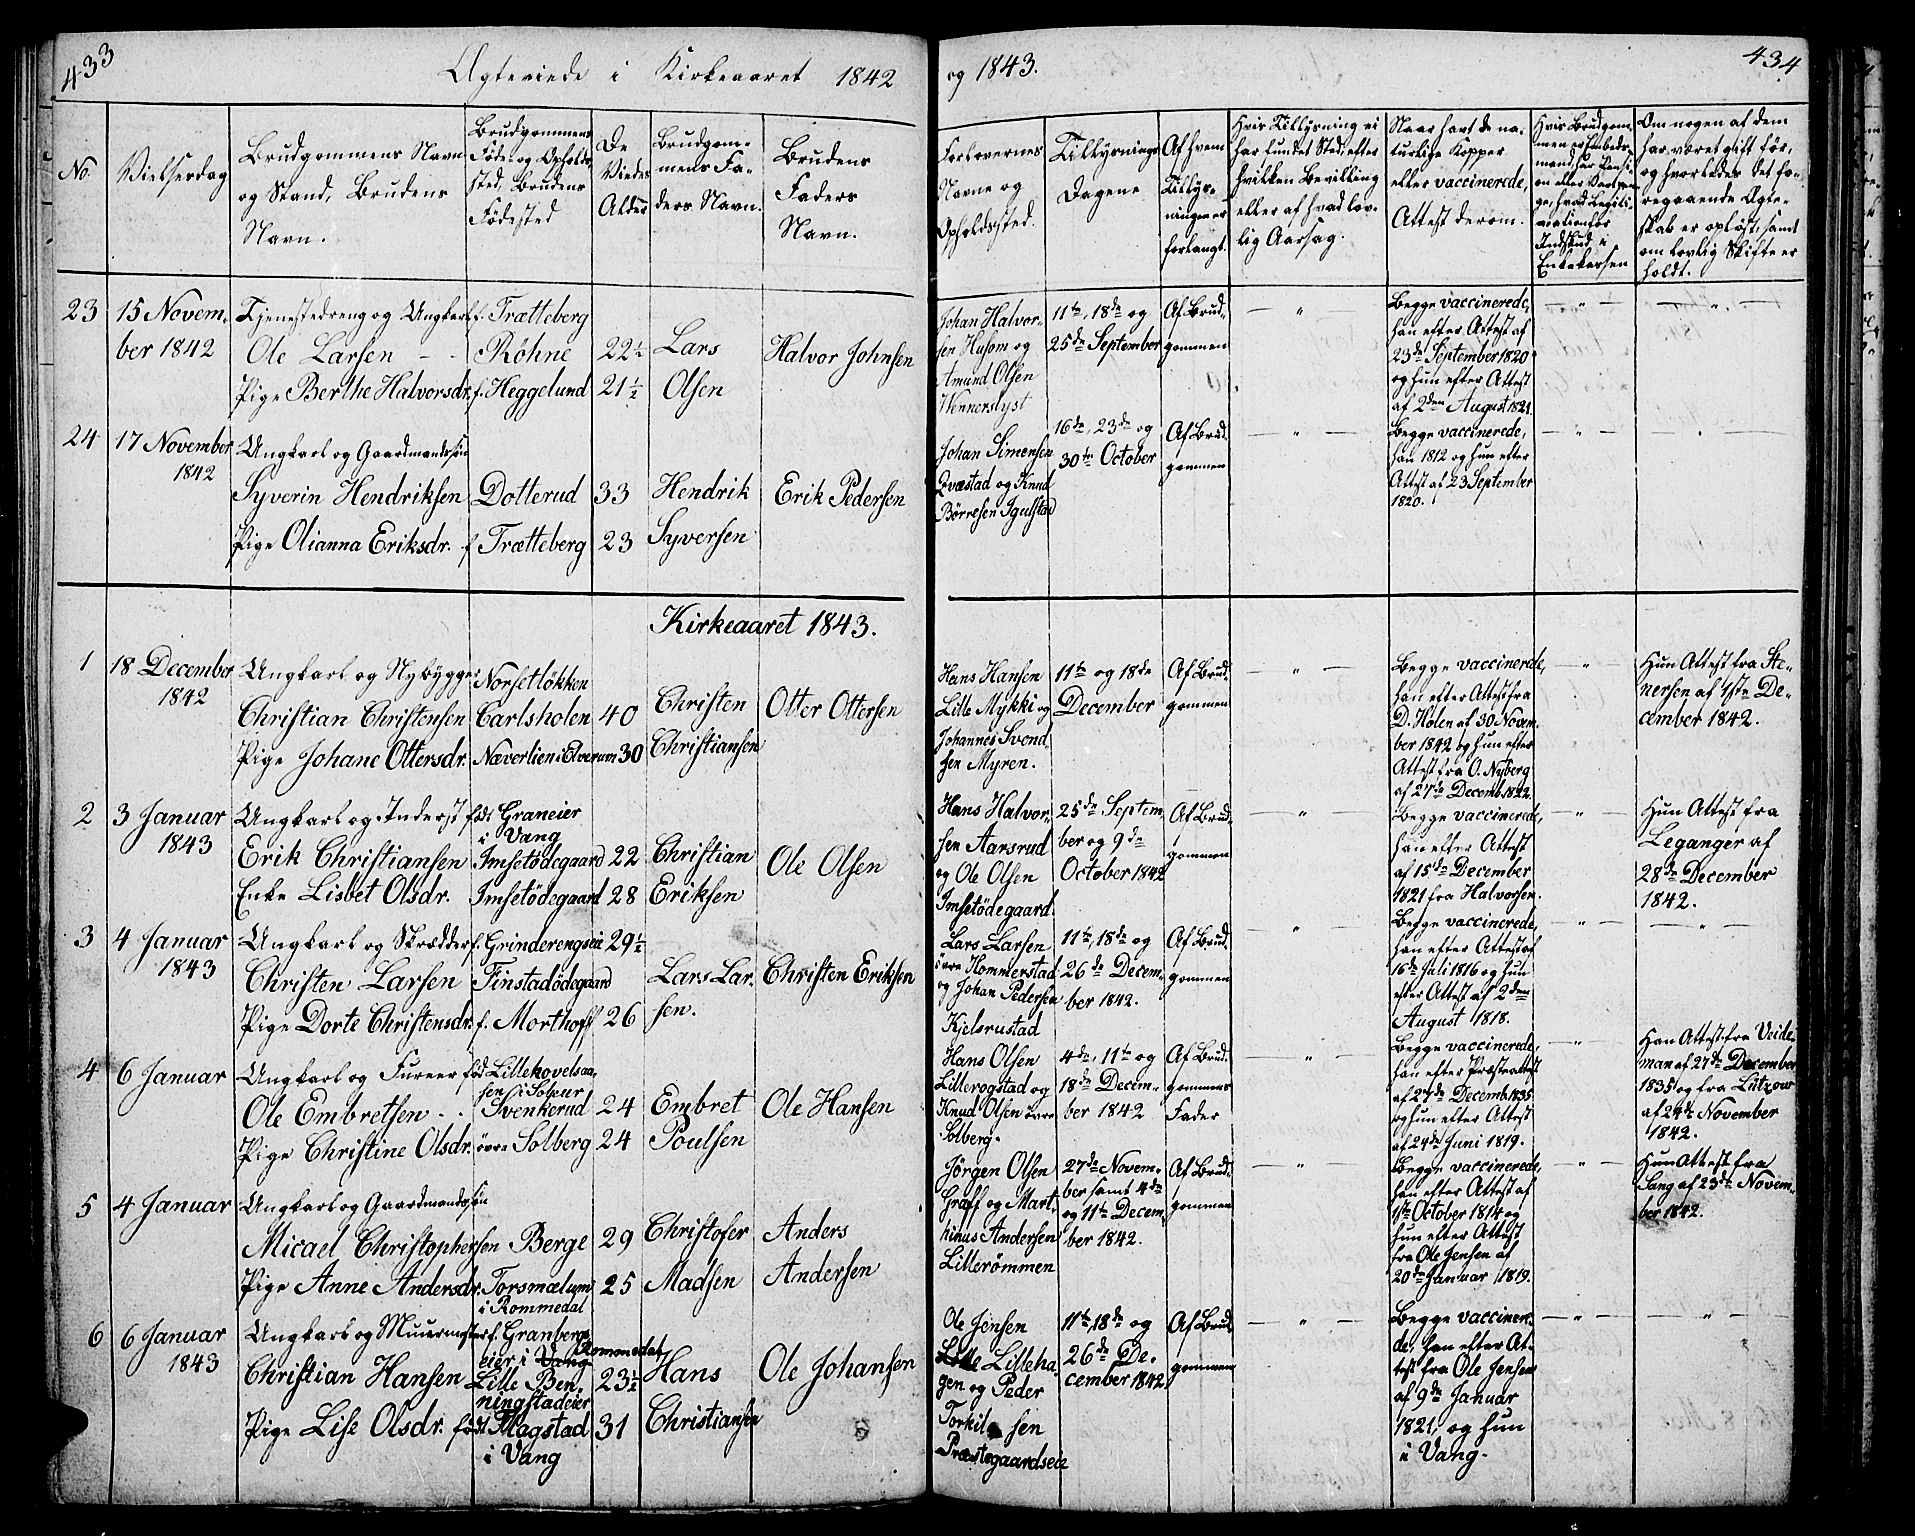 433
Ægteviede i Kirkeaaret 1842
No.
Vielsesdag
Brudgommens Navn
og Stand, Brudens
Navn.
Brudgommens
Føde og Opholds
sted, Brudens
Fødested
De
Viedes
Alder
Brudgom-
mens Fa-
ders Navn.
Brudens
Faders
Navn.
23
15 Novem-
ber 1842
Tjenestedreng og Ungkarl
Ole Larsen
Pige Berthe Halvorsdr.
f. Trætteberg
Röhne
f. Heggelund
22½
21½
Lars
Olsen
Halvor Johnsen
24
17 November
1842
Ungkarl og Gaardmandssøn
Syverin Hendriksen
Pige Olianna Eriksdr.
Dotterud
f. Trætteberg
33
23
Hendrik
Syversen
Erik Pedersen
Kirkeaaret 1843.
1
18 December
1842
Ungkarl og Nybygger
Christian Christensen
Pige Johane Ottersdr.
Norsetløkken
Carlsholen
Næverlien i Elverum
40
30
Christen
Christiansen
Otter Ottersen
2
3 Januar
1843
Ungkarl og Inderst
Erik Christiansen
Enke Lisbet Olsdr.
født Graneier
i Vang
Imsetödegaard
Imsetödegaard
22
28
Christian
Eriksen
Ole Olsen
3
4 Januar
1843
Ungkarl og Skrædder
Christen Larsen
Pige Dorte Christensdr.
f. Grinderengseie
Finstadödegaard
f. Morthoff
29½
26
Lars Lar-
sen.
Christen Eriksen
4
6 Januar
Ungkarl og Fureer
Ole Embretsen
Pige Christine Olsdr.
fød Lillehovelsaa-
sen i Soløer
Svenkerud
övre Solberg
24
24
Embret
Poulsen
Ole Hansen
5
4 Januar
Ungkarl og Gaardmandssøn
Micael Christophersen
Pige Anne Andersdr.
Berge
Torsmælum
i Rommedal
29
25
Christofer
Madsen
Anders
Andersen
6
6 Januar
1843
Ungkarl og Muurmester
Christian Hansen
Pige Lise Olsdr.
f. Granberg
eier i Vang Rommedal
Lille Ben-
ningstadeier
født Magstad
i Vang
23½
31
Hans
Christiansen
Ole Johansen
og 1843.
434
Forlovernes
Navne og
Opholdssted.
Tillysnings
Dagene
Af hvem
Tillys-
ningen er
forlangt.
Hvis Tillysning ei
har fundet Sted, efter
hvilken Bevilling
eller af hvad lov-
lig Aarsag.
Naar havt de na-
turlige Kopper
eller vaccinerede,
Attest derom.
Hvis Brudgom-
men er Embeds-
mand,
Indskud i
Enkekassen
Om nogen af dem
har været gift før,
og hvorledes det fo-
regaaende Ægte-
skab er opløst, samt
om lovlig Skifte er
holdt.
Johan Halvor-
sen Husom og
Amund Olsen
Wennerslyst
11te, 18de og
25de September
Af Brud-
gommen
Begge vaccinerede,
han efter Attest af
23de September 1820
og hun efter Attest
af 2den August 1821.
Johan Simensen
Qvæstad og Knud
Börresen Igulstad
16de, 23de og
30te October
Af Brud-
gommen
Begge vaccinerede,
han 1812 og hun efter
Attest af 23 September
1820.
Hans Hansen
Lille Mykki og
Johannes Svend-
sen Myren.
11te og 18de
December
Af Brud-
gommen
Begge vaccinerede,
han efter Attest fra
D. Holen af 30 Novem-
ber 1842 og hun efter
Attest fra O. Nyberg
af 27de Decemb. 1822.
Hun Attest fra Ste-
nersen af 1ste De-
cember 1842.
Hans Halvor-
sen Aarsrud
og Ole Olsen
Imsetödegaard.
25de Septem-
ber og 9de
October 1842
Af Brud-
gommen
Begge vaccinerede,
han efter Attest
af 15de December
1821 fra Halvorsen.
Hun Attest fra
Leganger af
28de December
1842.
Lars Larsen
övre Hommerstad
og Johan Pedersen
Kjelsrustad
11te, 18de og
26de Decem-
ber 1842.
Af Brud-
gommen
Begge vaccinerede,
han efter Attest af
16de Juli 1816 og hun
efter Attest af 2den
August 1818.
Hans Olsen
Lillerogstad og
Knud Olsen övre
Solberg.
4de, 11te og
18de Decem-
ber 1842
Af Brud-
gommes
Fader
Begge vaccinerede,
han efter Præsteattest
af 27de Decemb. 1835
og hun efter Attest
af 24de Juni 1819.
Han Attest fra Veide-
man af 27de December
1835 og fra Lützow
af 24de November
1842.
Jörgen Olsen
Graff og Mart-
hinus Andersen
Lillerömmen
27de Novem-
ber samt 4de
og 11te Decem-
ber 1842.
Af Brud-
gommen
Begge vaccinerede,
han efter Attest af
1ste October 1814 og
hun efter Attest
fra Ole Jensen af
20de Januar 1819.
Hun Attest fra
Lang af 23de Novem-
ber 1842.
Ole Jensen
Lille Lilleha-
gen og Peder
Torkilsen
Præstegaardseie
11te, 18de og
26de De-
cember 1842
Af Brud-
gommen
Begge vaccinere-
de, han efter At-
test fra Ole Jensen
af 9de Januar
1821, og hun
i Vang.